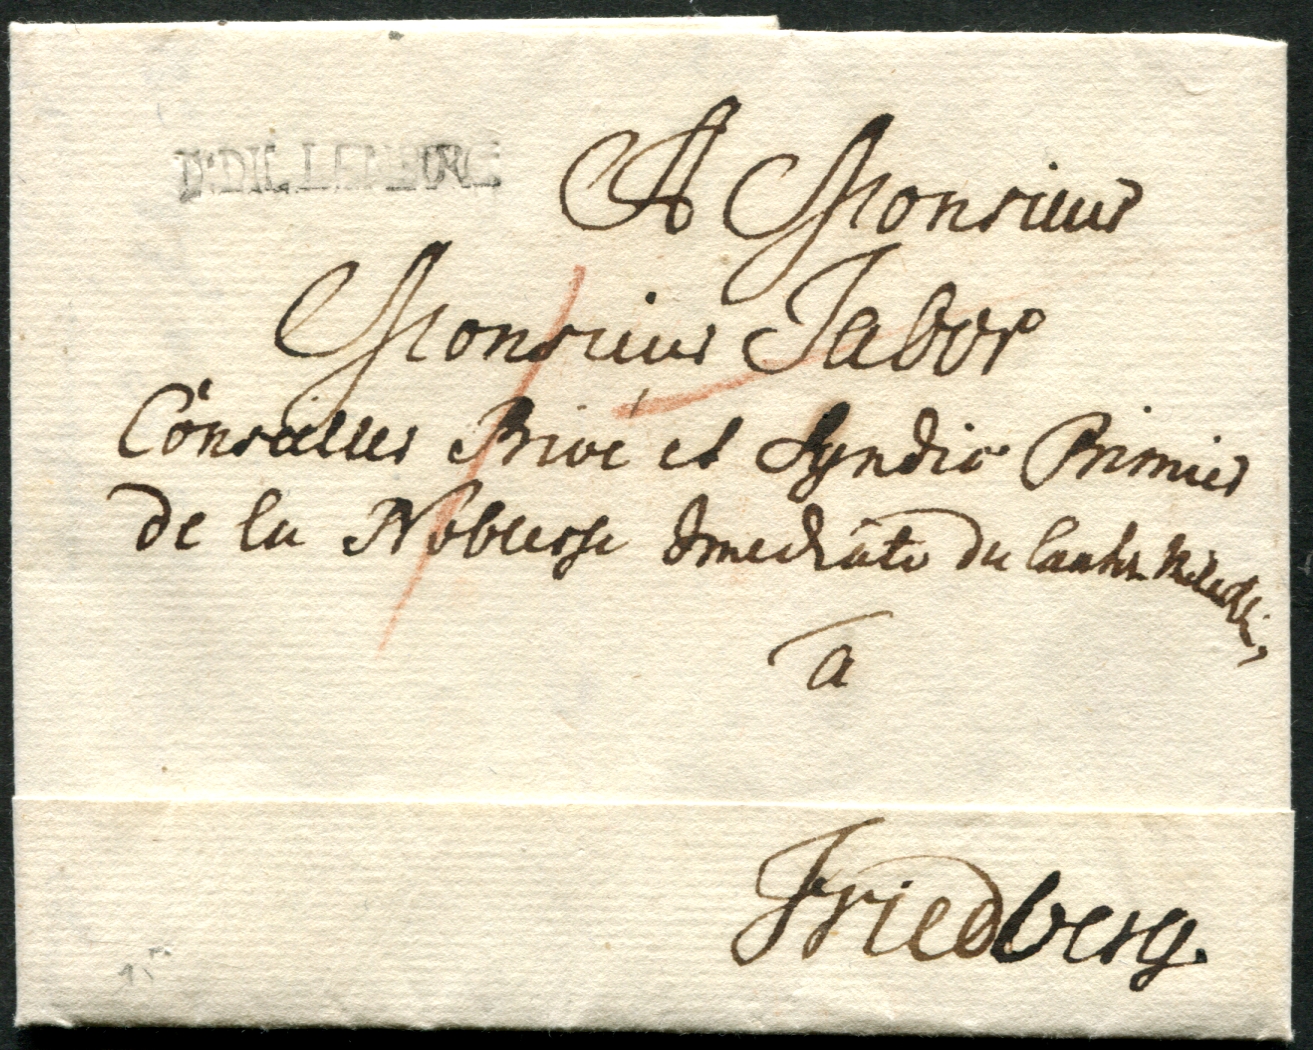 D:DILLENBURG
A Monsieur
Monsieur Tabor
Conseiller Privé et Syndic Primier
de la Noblesse Imediate du Canton
à
Friedberg.
15